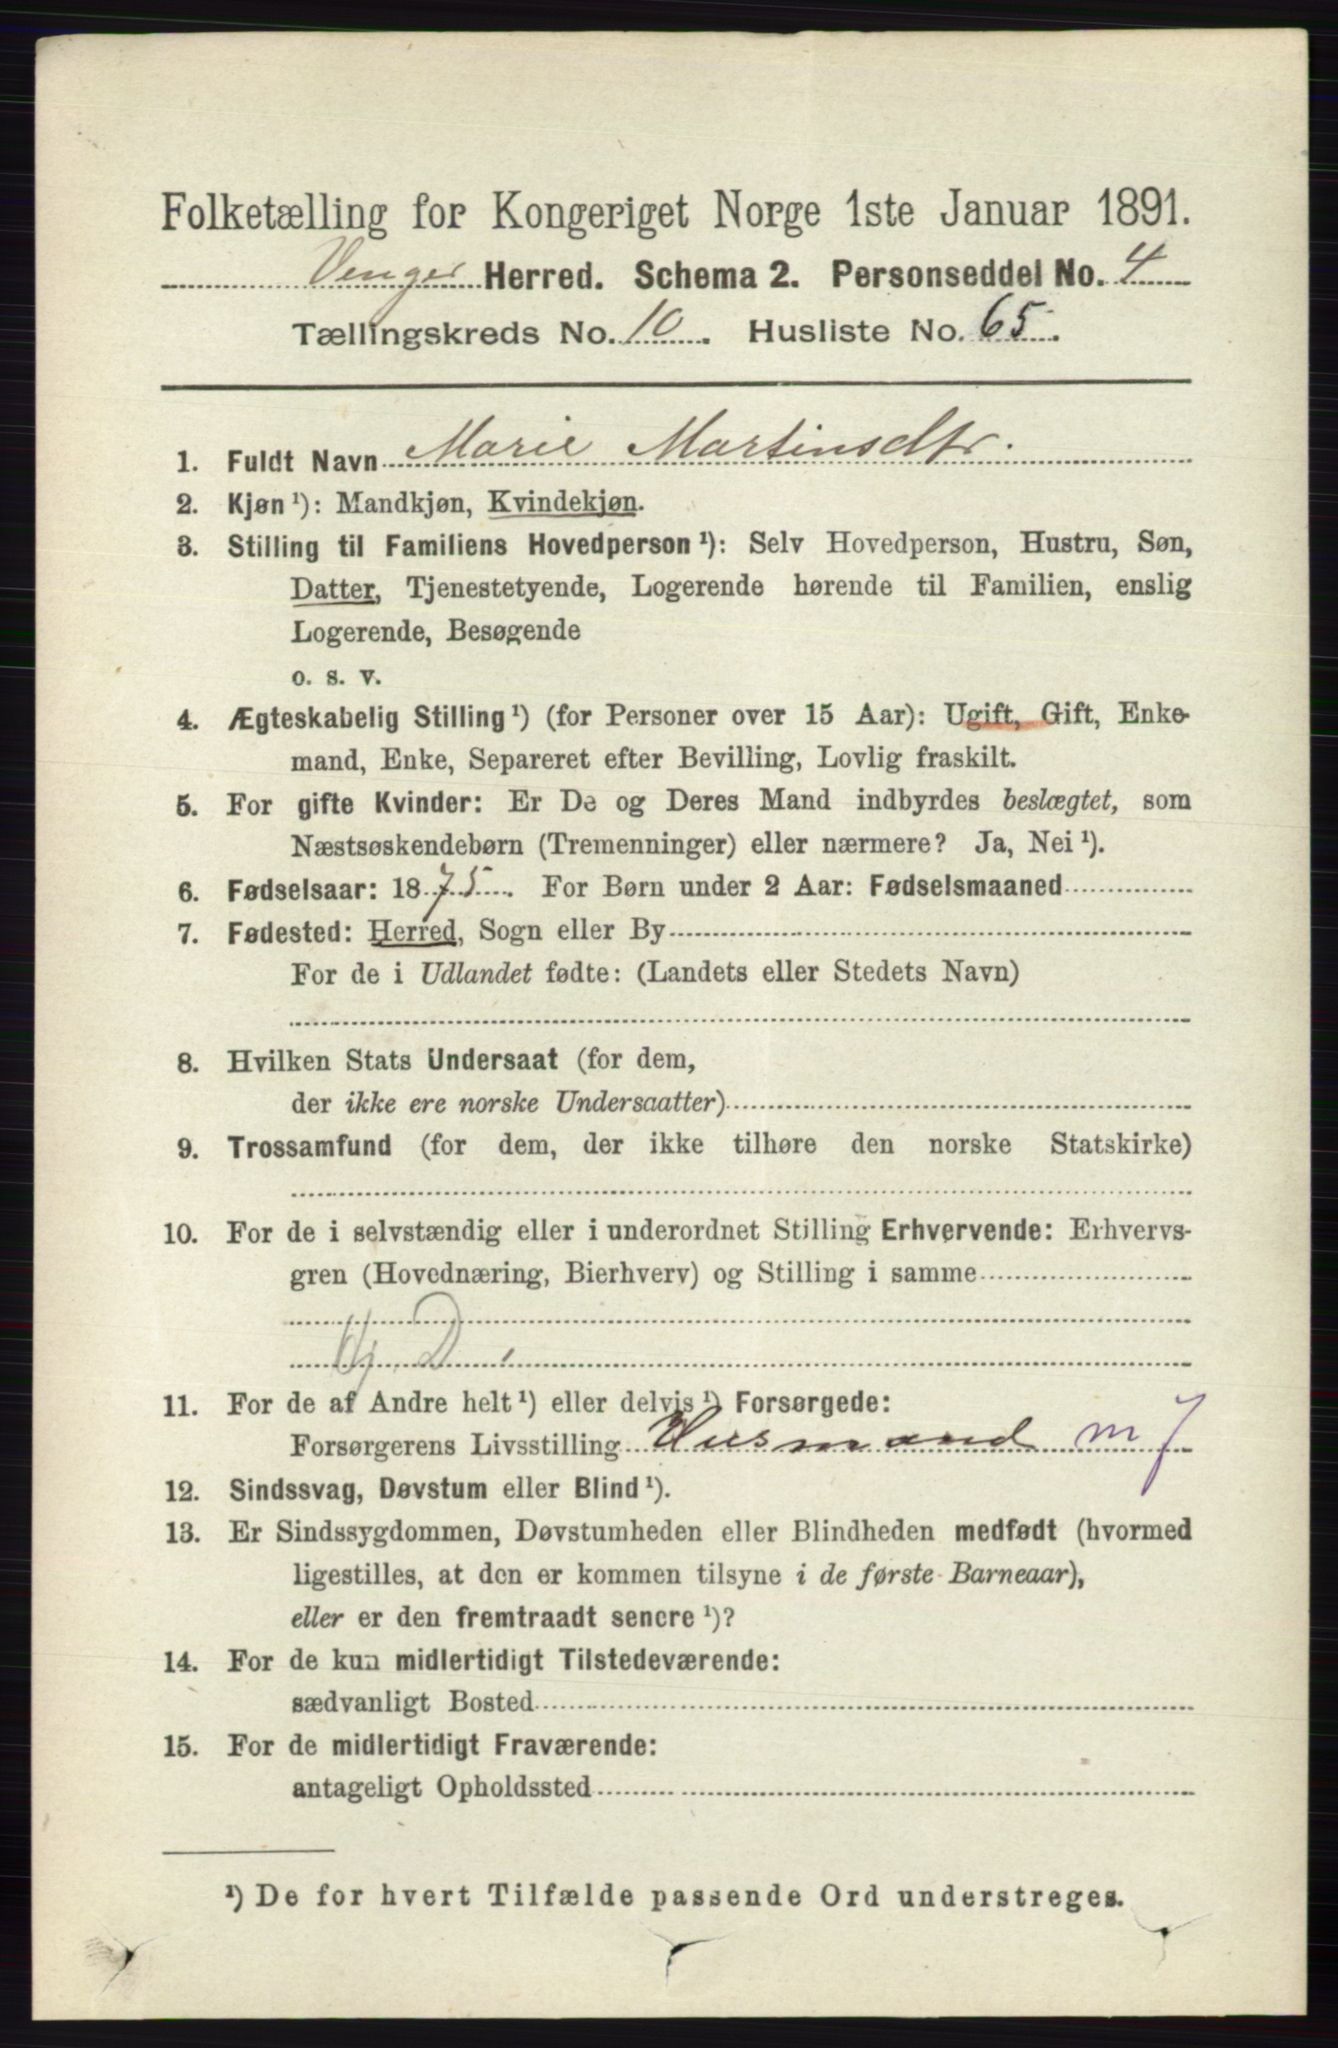 Folketælling for Kongeriget Norge 1ste Januar 1891.
Vinger Herred. Schema 2. Personseddel No. 4
Tællingskreds No. 10. Husliste No. 65.
1. Fuldt Navn Marie Martinsdtr.
2. Kjøn ¹): Mandkjøn, Kvindekjøn.
3. Stilling til Familiens Hovedperson ¹): Selv Hovedperson, Hustru, Søn,
Datter, Tjenestetyende, Logerende hørende til Familien, enslig
Logerende, Besøgende
o. s. v.
4. Ægteskabelig Stilling ¹) (for Personer over 15 Aar): Ugift, Gift, Enke-
mand, Enke, Separeret efter Bevilling, Lovlig fraskilt.
5. For gifte Kvinder: Er De og Deres Mand indbyrdes beslægtet, som
Næstsøskendebørn (Tremenninger) eller nærmere? Ja, Nei ¹).
6. Fødselsaar: 1875. For Børn under 2 Aar: Fødselsmaaned
7. Fødested: Herred, Sogn eller By
For de i Udlandet fødte: (Landets eller Stedets Navn)
8. Hvilken Stats Undersaat (for dem,
der ikke ere norske Undersaatter)
9. Trossamfund (for dem, der ikke tilhøre den norske Statskirke)
10. For de i selvstændig eller i underordnet Stilling Erhvervende: Erhvervs-
gren (Hovednæring, Bierhverv) og Stilling i samme
11. For de af Andre helt ¹) eller delvis ¹) Forsørgede:
Forsørgerens Livsstilling Husmand m J
12. Sindssvag, Døvstum eller Blind ¹).
13. Er Sindssygdommen, Døvstumheden eller Blindheden medfødt (hvormed
ligestilles, at den er kommen tilsyne i de første Barneaar),
eller er den fremtraadt senere ¹)?
14. For de kun midlertidigt Tilstedeværende:
sædvanligt Bosted
15. For de midlertidigt Fraværende:
antageligt Opholdssted
¹) De for hvert Tilfælde passende Ord understreges.